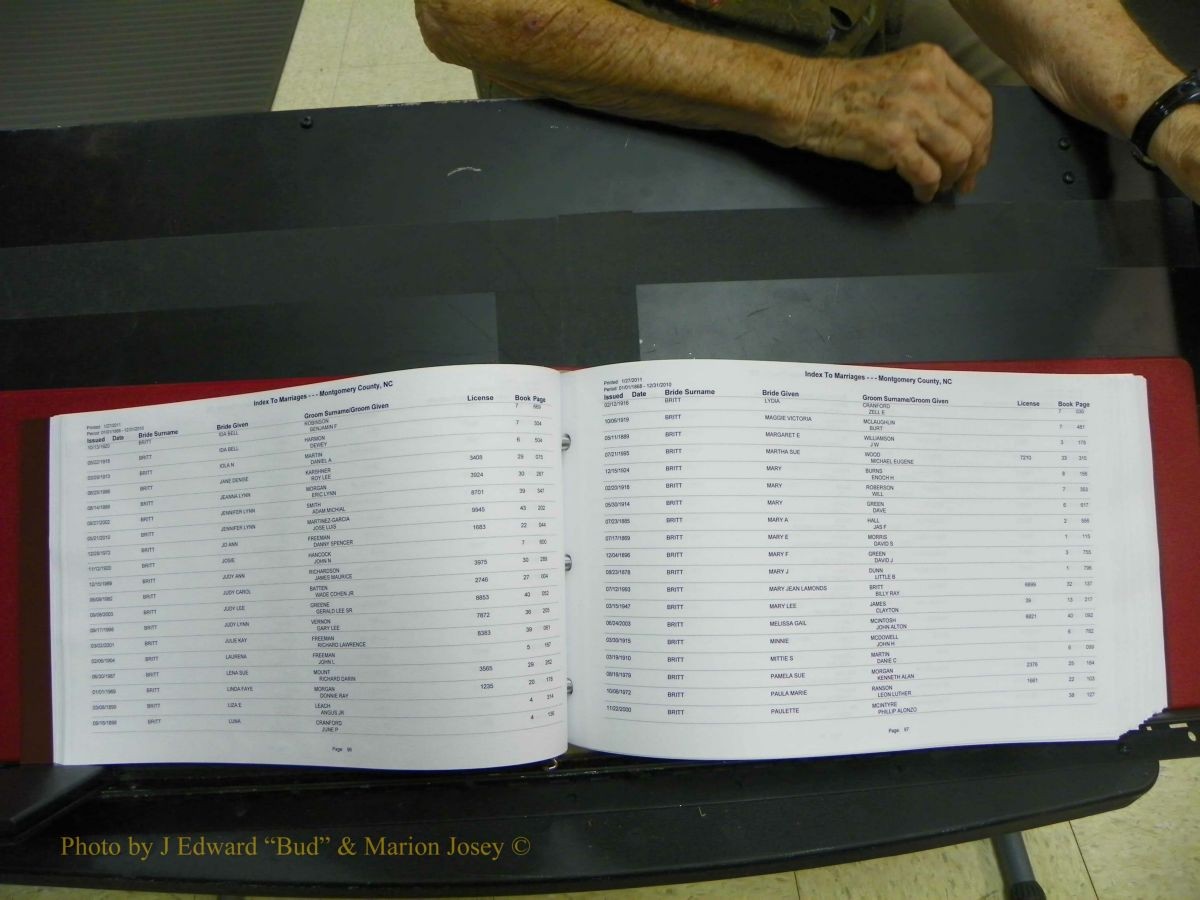 Index To Marriages - - - Montgomery County, NC
Printed 1/27/2011
Period: 01/01/1868 - 12/31/2010
Issued Date Bride Surname Bride Given Groom Surname/Groom Given License Book Page
10/13/1920 BRITT IDA BELL ROBINSON 7 669
BENJAMIN F
BRITT IDA BELL HARMON 7 304
DEWEY
BRITT IOLA N MARTIN 6 504
DANIEL A
BRITT JANE DENISE KARSHNER 3408 29 075
ROY LEE
BRITT JEANNA LYNN MORGAN 3924 30 267
ERIC LYNN
BRITT JENNIFER LYNN SMITH 8701 39 341
ADAM MICHAL
BRITT JENNIFER LYNN MARTINEZ-GARCIA 9945 43 202
JOSE LUIS
BRITT JO ANN FREEMAN 1683 22 044
DANNY SPENCER
BRITT JOSIE HANCOCK 7 600
JOHN N
BRITT JUDY ANN RICHARDSON 3975 30 289
JAMES MAURICE
BRITT JUDY CAROL BATTEN 2746 27 004
WADE COHEN JR
BRITT JUDY LEE GREENE 8853 40 052
GERALD LEE SR
BRITT JUDY LYNN VERNON 7872 36 205
GARY LEE
03/02/2001 BRITT JULIE KAY FREEMAN 8383 39 061
RICHARD LAWRENCE
BRITT LAURENA FREEMAN 5 187
JOHN L
BRITT LENA SUE MOUNT 3565 29 252
RICHARD DARIN
01/01/1969 BRITT LINDA FAYE MORGAN 1235 20 176
DONNIE RAY
BRITT LIZA E LEACH 4 214
ANGUS JR
09/18/1898 BRITT LUNA CRANFORD 4 136
JUNE P
Page 96
Index To Marriages - - - Montgomery County, NC
Printed 1/27/2011
Period: 01/01/1868 - 12/31/2010
Issued Date Bride Surname Bride Given Groom Surname/Groom Given License Book Page
02/12/1916 BRITT LYDIA CRANFORD 7 030
ZELL E
10/06/1919 BRITT MAGGIE VICTORIA MCLAUGHLIN 7 481
BURT
05/11/1889 BRITT MARGARET E WILLIAMSON 3 175
J W
07/21/1995 BRITT MARTHA SUE WOOD 7210 33 310
MICHAEL EUGENE
12/15/1924 BRITT MARY BURNS 8 156
ENOCH H
02/20/1918 BRITT MARY ROBERSON 7 302
WILL
05/30/1914 BRITT MARY GREEN 6 617
DAVE
07/23/1885 BRITT MARY A HALL 2 556
JAS F
07/17/1869 BRITT MARY E MORRIS 1 115
DAVID S
12/04/1896 BRITT MARY F GREEN 3 755
DAVID J
08/23/1878 BRITT MARY J DUNN 1 796
LITTLE B
07/12/1993 BRITT MARY JEAN LAMONDS BRITT 6699 32 137
BILLY RAY
03/15/1947 BRITT MARY LEE JAMES 39 13 217
CLAYTON
06/24/2003 BRITT MELISSA GAIL MCINTOSH 8821 40 092
JOHN ALTON
03/30/1915 BRITT MINNIE MCDOWELL 6 782
JOHN H
03/19/1910 BRITT MITTIE S MARTIN 6 099
DANIE C
08/18/1979 BRITT PAMELA SUE MORGAN 2376 25 164
KENNETH ALAN
10/06/1972 BRITT PAULA MARIE RANSON 1661 22 103
LEON LUTHER
11/22/2000 BRITT PAULETTE MCINTYRE 38 127
PHILLIP ALONZO
Page 97
Photo by J Edward “Bud” & Marion Josey ©